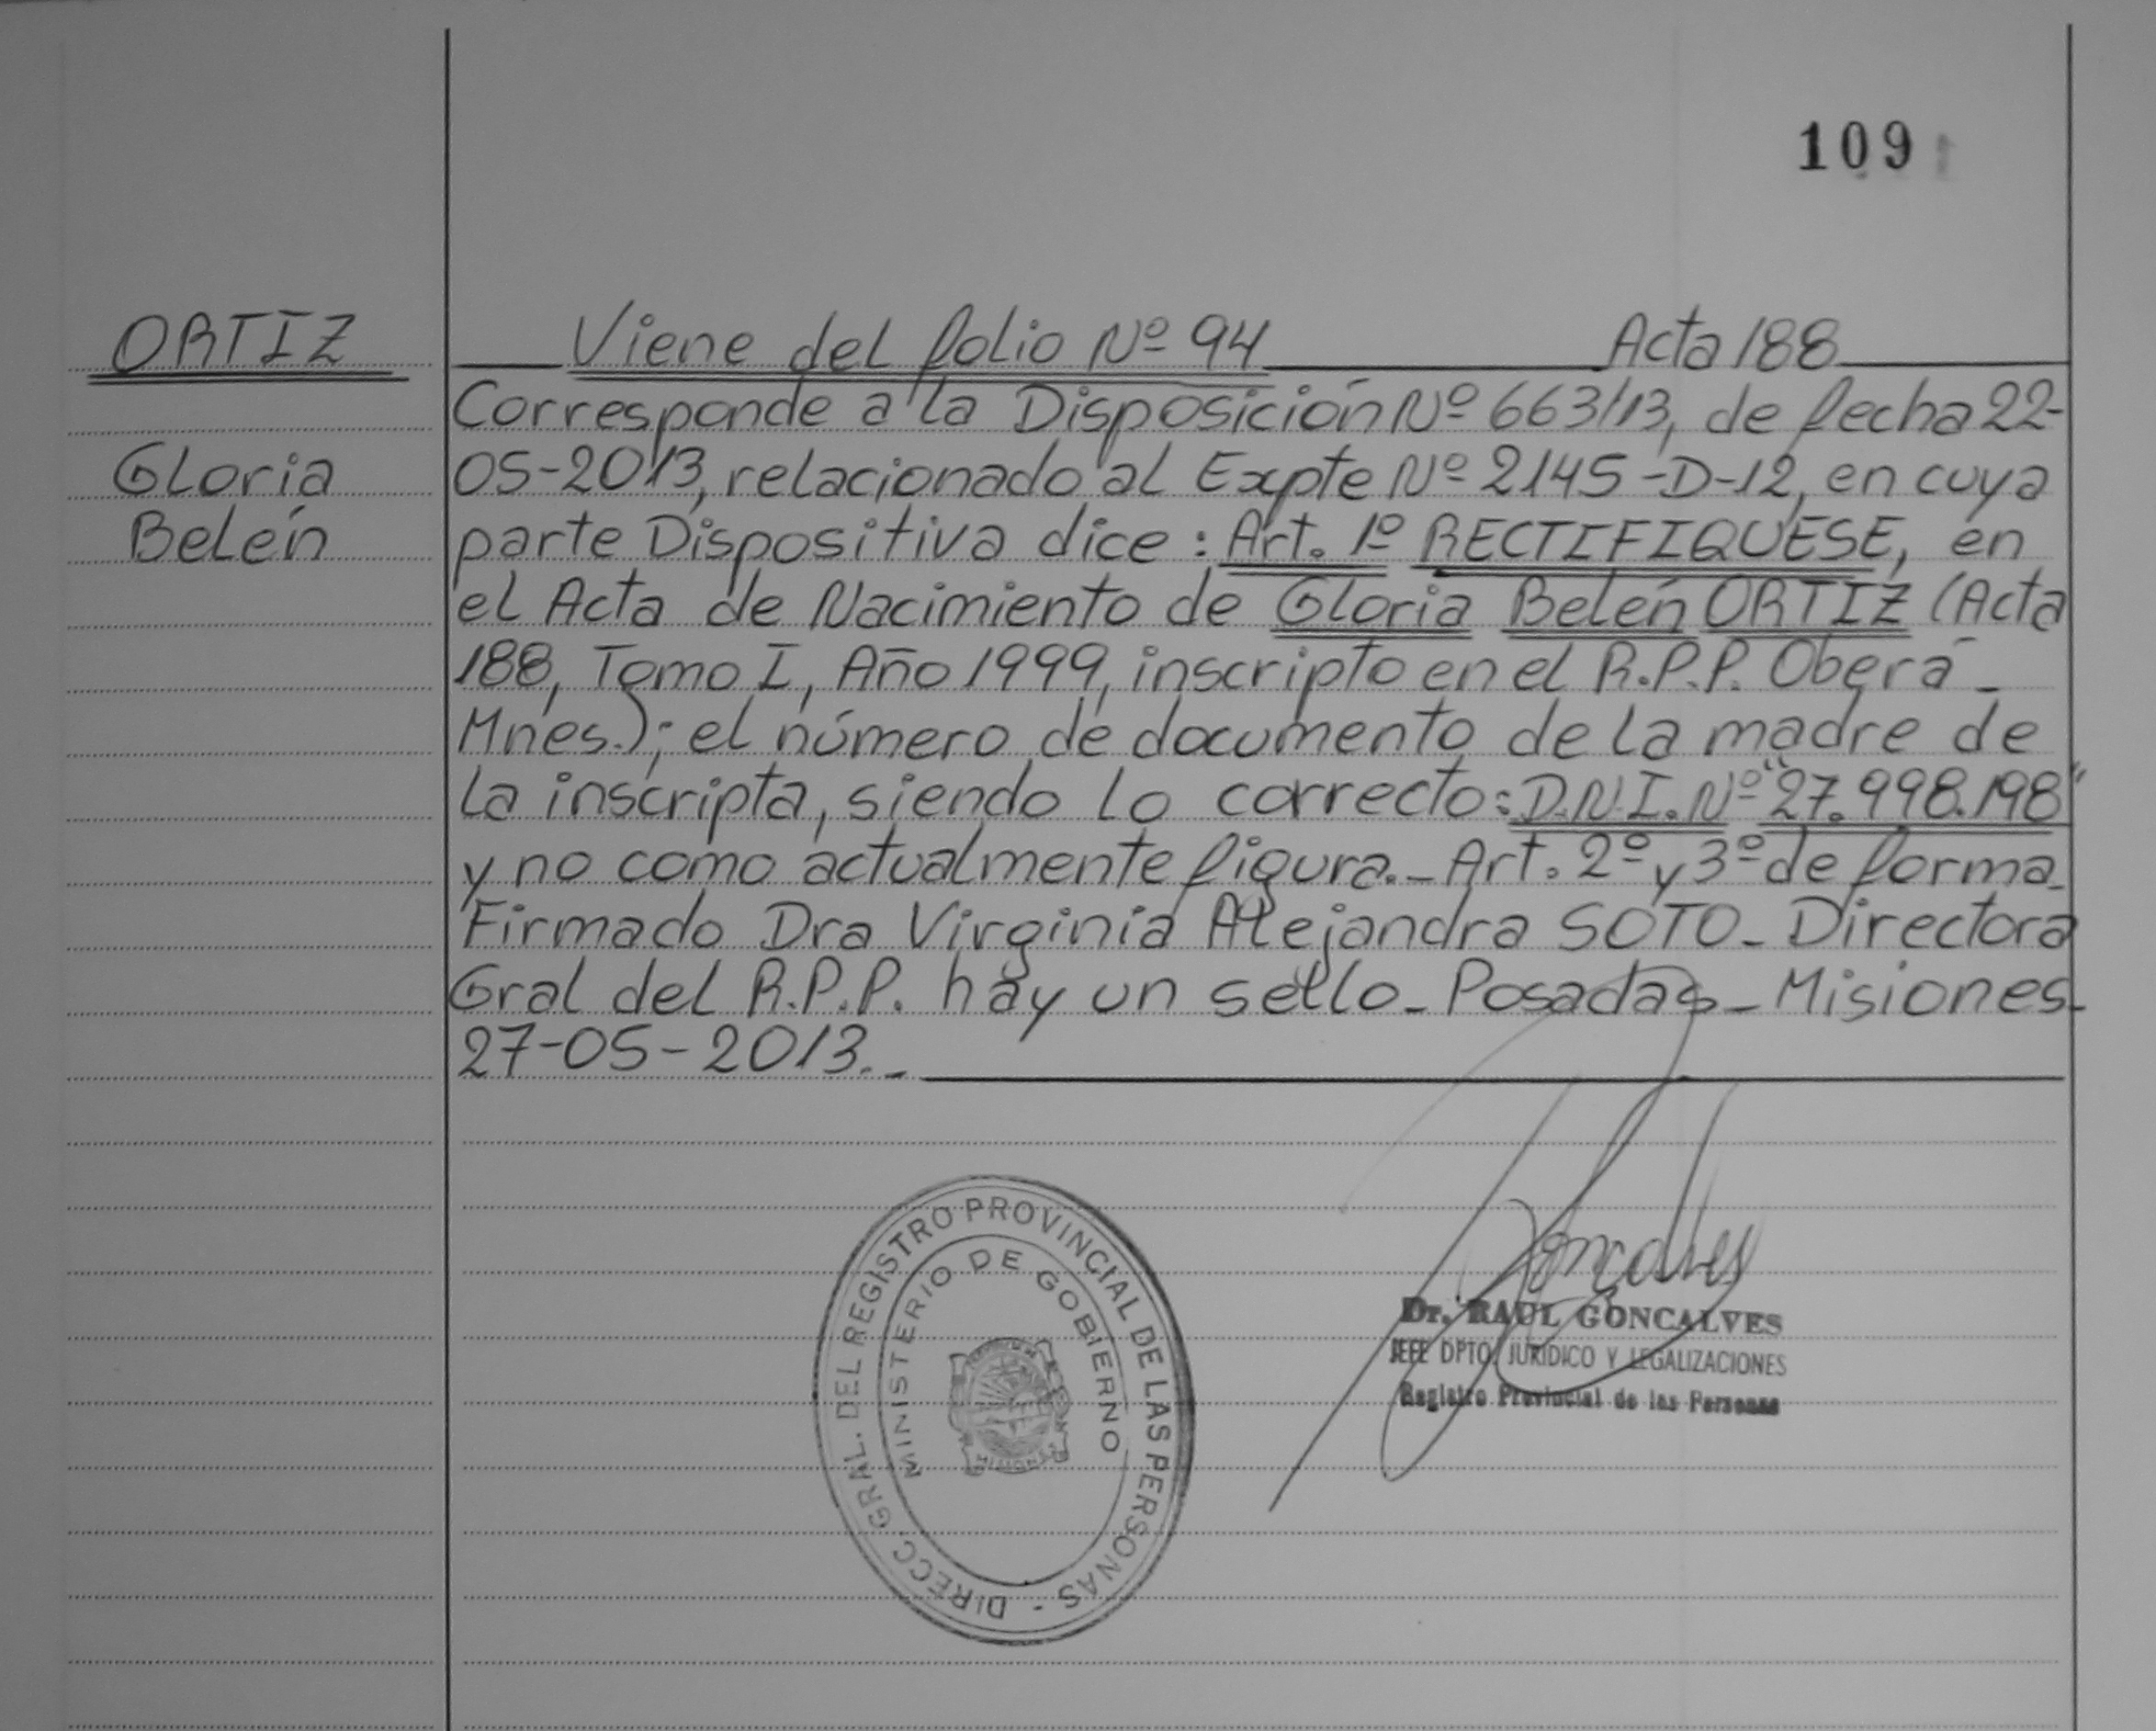 109
ORTIZ
Viene del folio Nº 94 Acta 188
Corresponde a la Disposición Nº 663/13, de fecha 22-
Gloria
05-2013, relacionado al Expte Nº 2145-D-12, en cuya
Belén
parte Dispositiva dice: Art. 1º RECTIFIQUESE, en
el Acta de Nacimiento de Gloria Belén ORTIZ (Acta
188, Tomo I, Año 1999, inscripto en el R.P.P. Oberá -
Mnes.); el número de documento de la madre de
la inscripta, siendo lo correcto: D.N.I. Nº "27.998.198"
y no como actualmente figura.- Art. 2º y 3º de forma-
Firmado Dra Virginia Alejandra SOTO- Directora
Gral del R.P.P. hay un sello- Posadas- Misiones-
27-05-2013.-
DIRECC. GRAL. DEL REGISTRO PROVINCIAL DE LAS PERSONAS -
MINISTERIO DE GOBIERNO
MISIONES
Goncalves
Dr. RAUL GONCALVES
JEFE DPTO. JURIDICO Y LEGALIZACIONES
Registro Provincial de las Personas